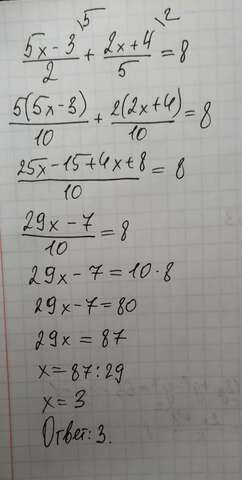 \5 \2
(5x-3)/2 + (2x+4)/5 = 8
5(5x-3)/10 + 2(2x+4)/10 = 8
(25x-15+4x+8)/10 = 8
(29x-7)/10 = 8
29x-7=10·8
29x-7=80
29x=87
x=87:29
x=3
Ответ: 3.